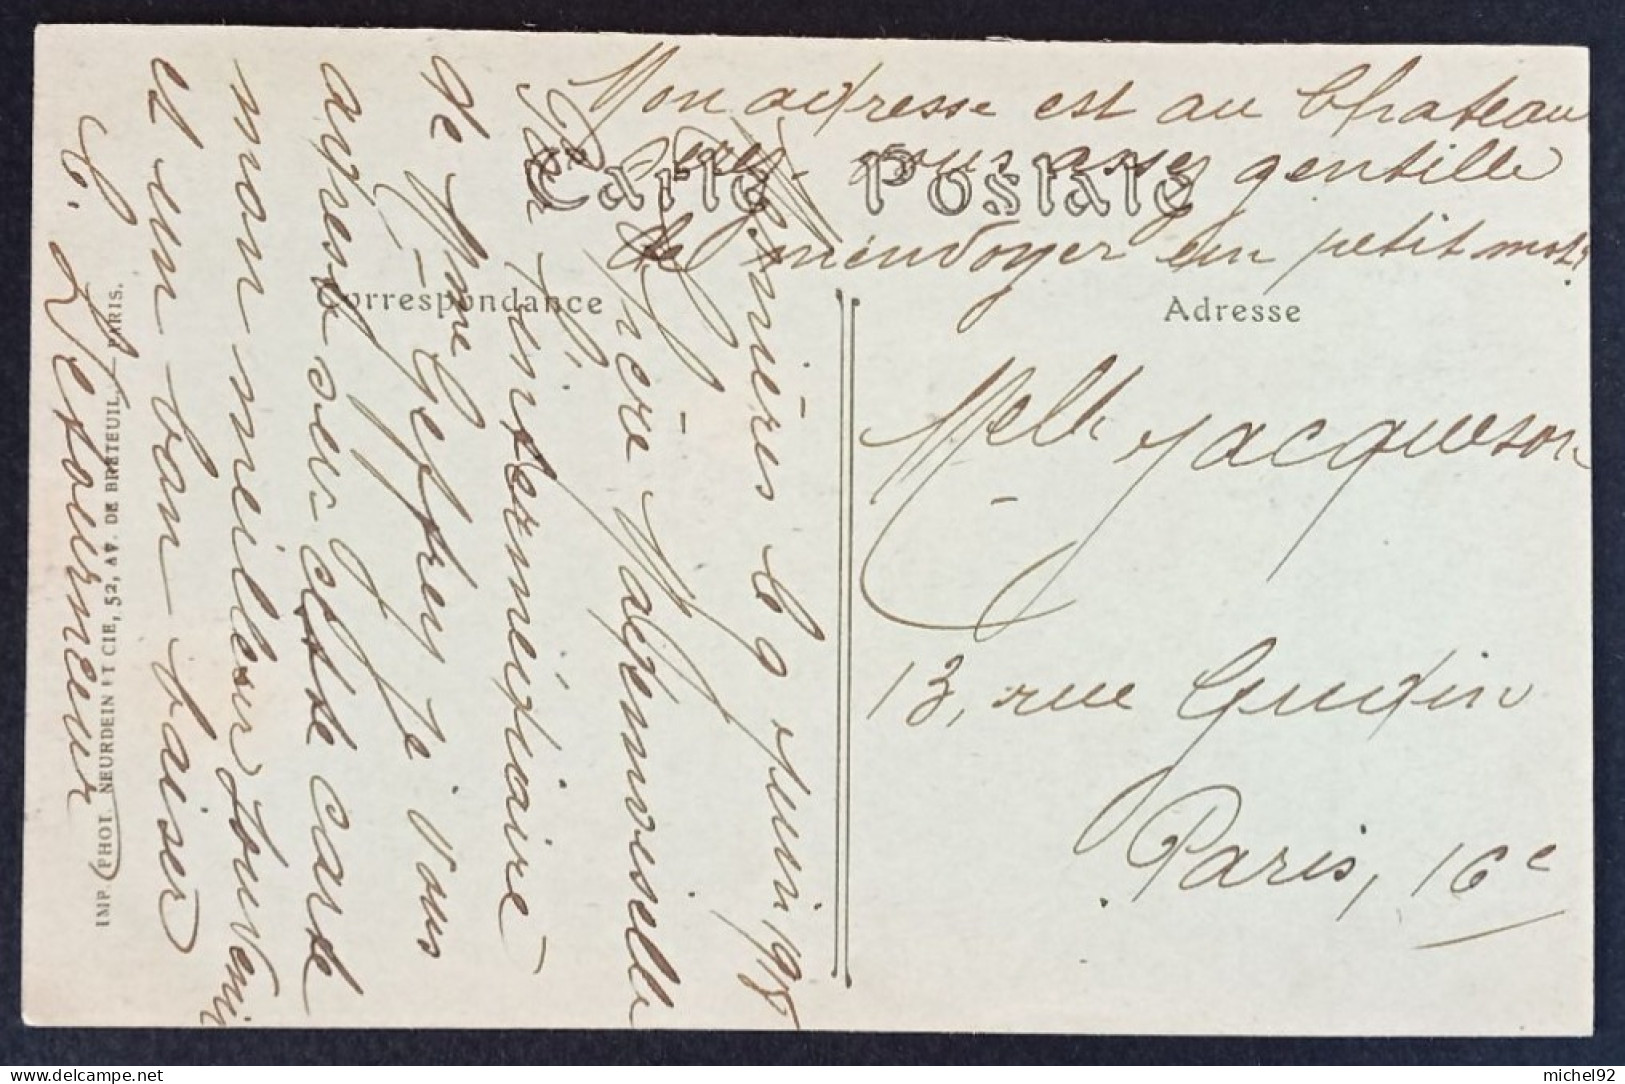 Mon adresse est au Chateau
serez-vous assez gentille
de m'envoyer un petit mot?
Carte Postale
Correspondance
Adresse
Melle Jacqueson
13, rue Gudin
Paris, 16e
le 9 juin 1918
Chère Mademoiselle
Par l'intermédiaire
de Mme Geffrey je vous
adresse sur cette carte
mon meilleur souvenir
et un bon baiser
C. Letourneur
IMP. PHOT. NEURDEIN ET CIE, 52, AV. DE BRETEUIL. — PARIS.
michel92